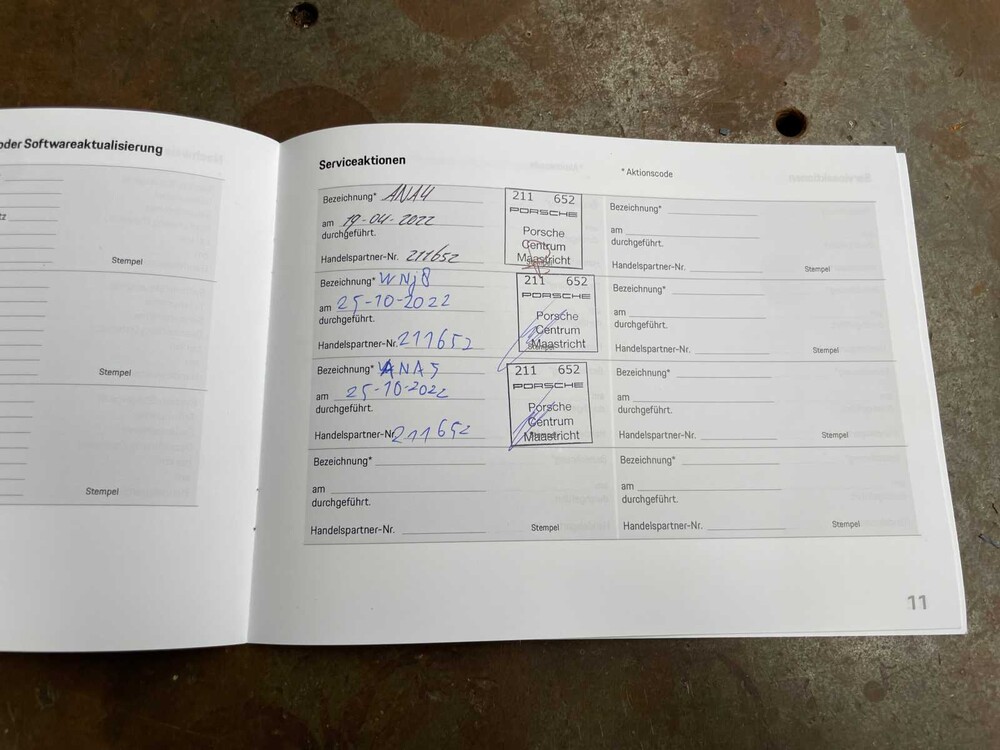 oder Softwareaktualisierung
Stempel
Stempel
Stempel
Serviceaktionen
* Aktionscode
Bezeichnung* ANA4
am 19-04-2022
durchgeführt.
Handelspartner-Nr. 211652
211 652
PORSCHE
Porsche
Centrum
Maastricht
Bezeichnung* WNj8
am 25-10-2022
durchgeführt.
Handelspartner-Nr. 211652
211 652
PORSCHE
Porsche
Centrum
Maastricht
Stempel
Bezeichnung* ANA5
am 25-10-2022
durchgeführt.
Handelspartner-Nr. 211652
211 652
PORSCHE
Porsche
Centrum
Maastricht
Stempel
Bezeichnung*
am
durchgeführt.
Handelspartner-Nr.
Stempel
Bezeichnung*
am
durchgeführt.
Handelspartner-Nr.
Stempel
Bezeichnung*
am
durchgeführt.
Handelspartner-Nr.
Stempel
Bezeichnung*
am
durchgeführt.
Handelspartner-Nr.
Stempel
Bezeichnung*
am
durchgeführt.
Handelspartner-Nr.
Stempel
11